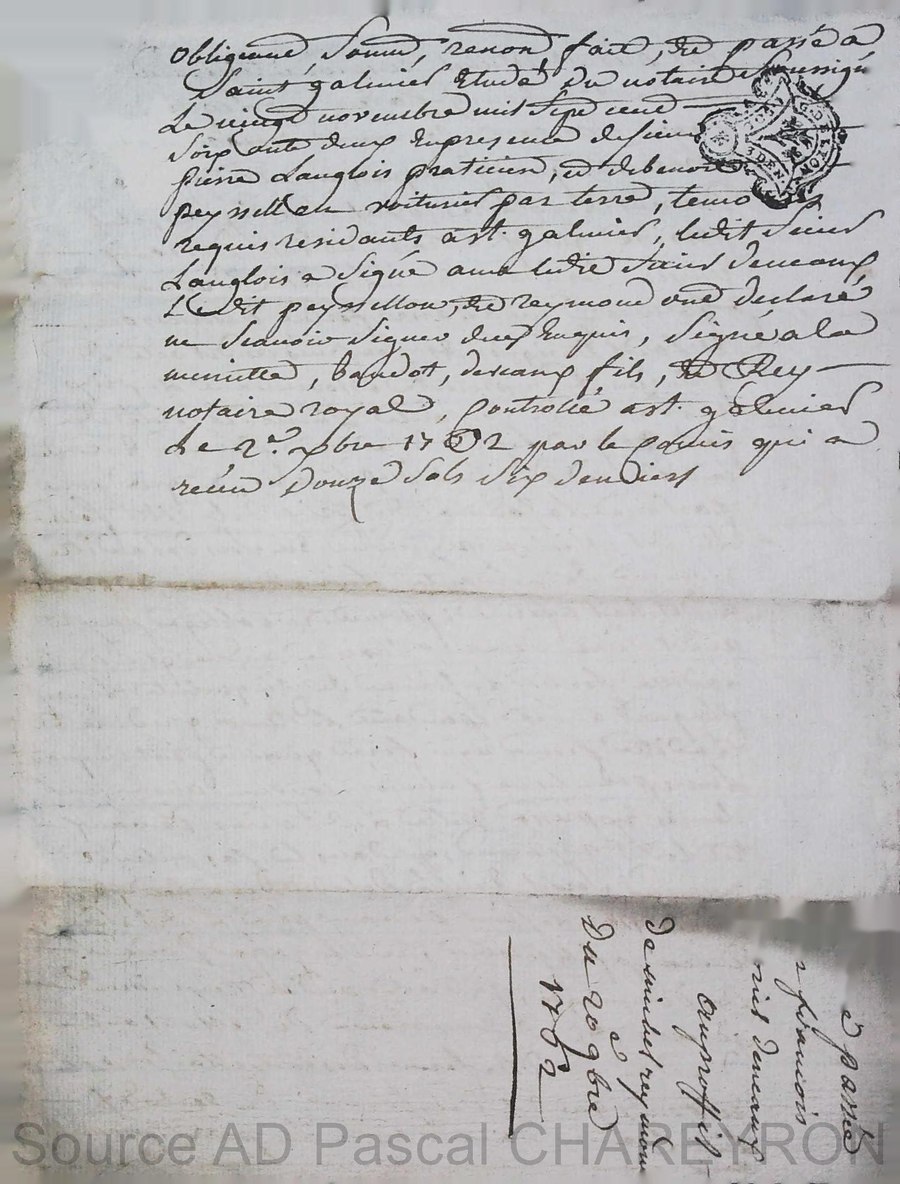 obligeand, soumd, renond fait, et passé a
Saint galmier Etude du notaire soussigné
Le vingt novembre mil sept cent
soixante deux En presence de sieur
pierre Langlois praticien, et de benoit
peyssellon voiturier par terre, temo
requis residants a st. galmier, ledit sieur
Langlois a signé avec ledit sieur
Ledit peyssellon, et reymond ont declaré
ne scavoir signer duep Enquis, signé a la
minutte, baudot, descamp fils, et Rey
notaire royal, Controllé a st. galmier
Le 2e. xbre 1762 par le commis qui a
receu douze sols six deniers
G. DE
3 DEN
a passé
francois
au proffit
de reymond
Du 20 9bre
1762
Source AD Pascal CHAREYRON